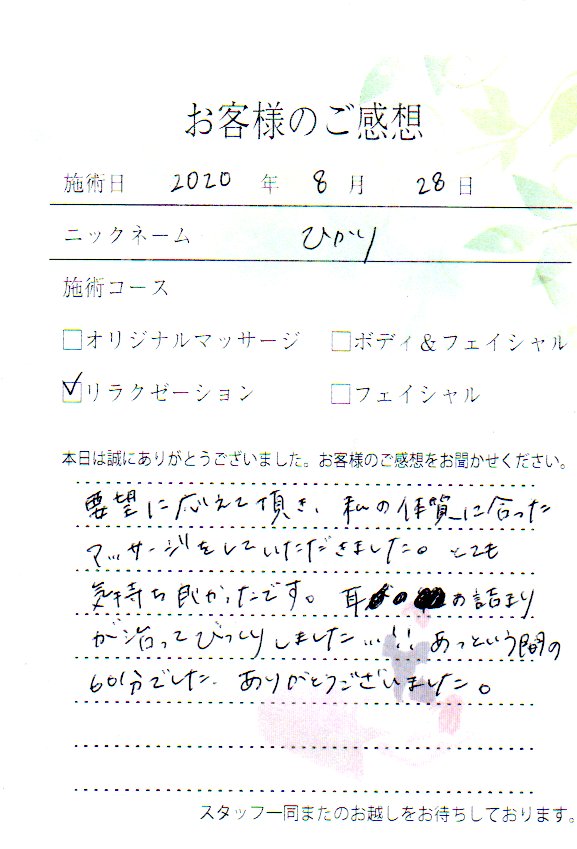 お客様のご感想
施術日 2020 年 8 月 28 日
ニックネーム ひかり
施術コース
□オリジナルマッサージ □ボディ&フェイシャル
☑リラクゼーション □フェイシャル
本日は誠にありがとうございました。お客様のご感想をお聞かせください。
要望に応えて頂き、私の体質に合った
マッサージをしていただきました。とても
気持ち良かったです。耳の詰まり
が治ってびっくりしました…!! あっという間の
60分でした。ありがとうございました。
スタッフ一同またのお越しをお待ちしております。